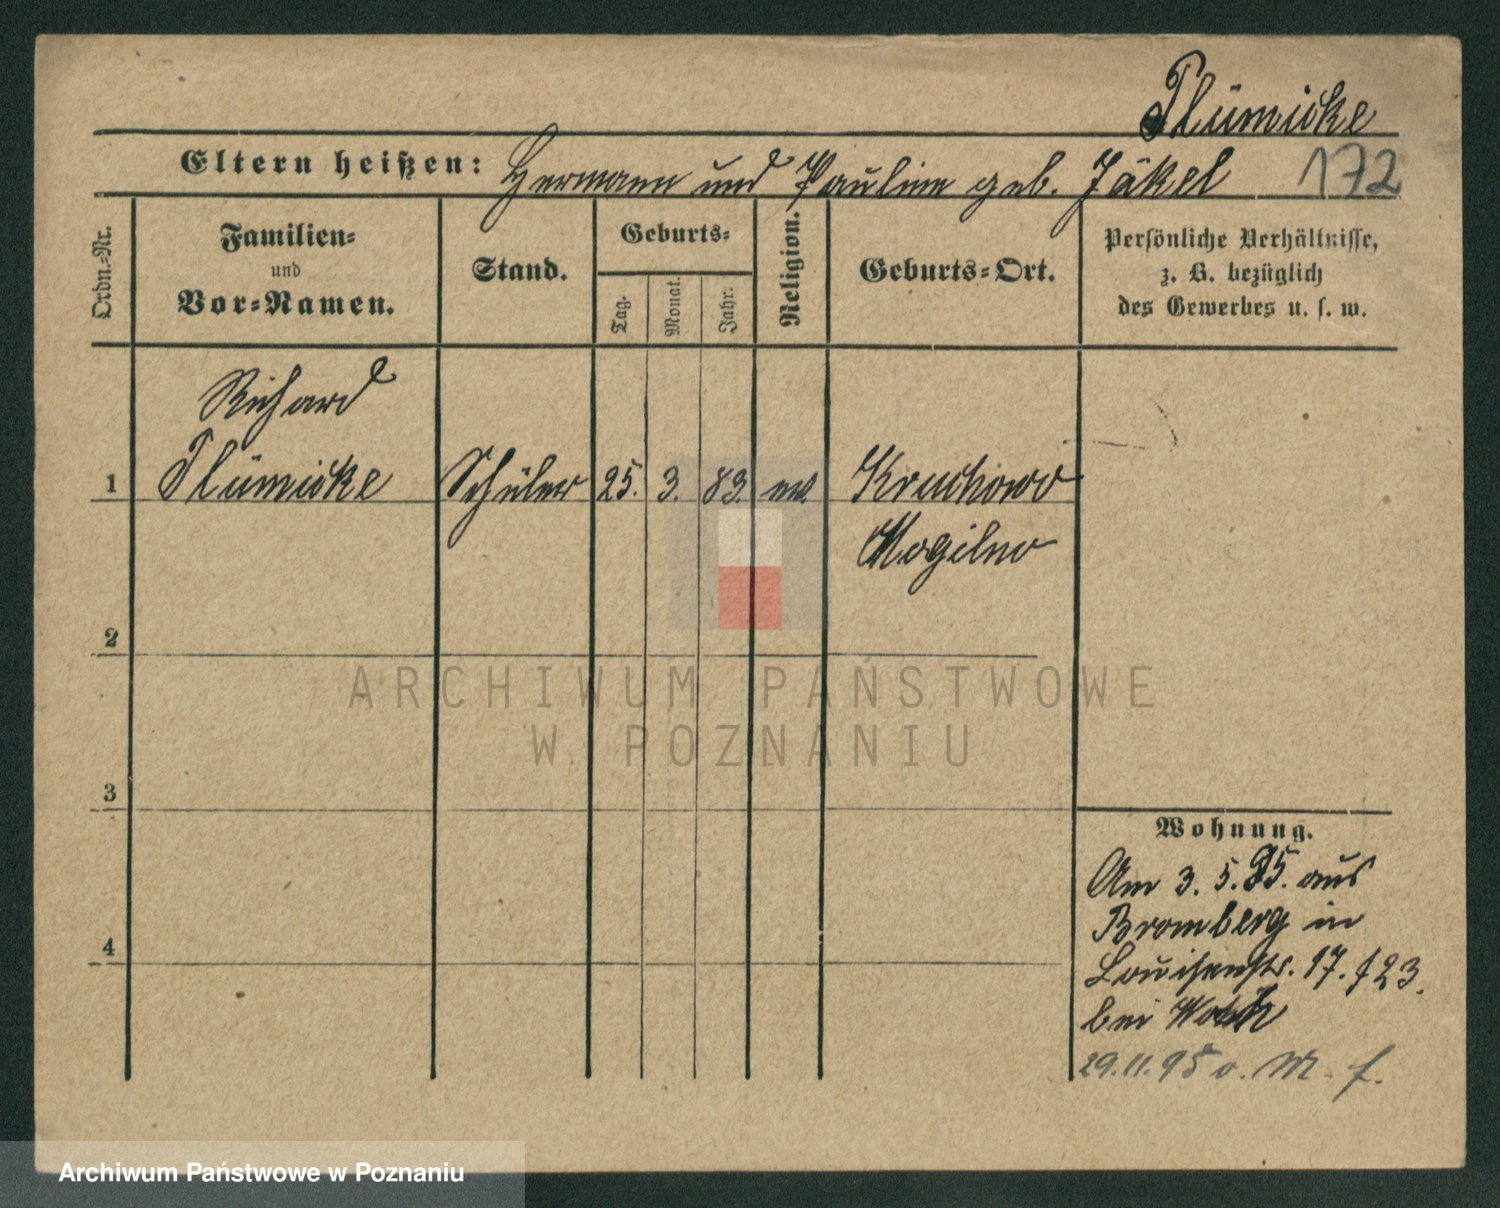 Plümicke
Eltern heißen: Hermann und Pauline geb. Jäkel 172
Ordn.=Nr.
Familien=
und
Vor=Namen.
Stand.
Geburts=
Tag.
Monat.
Jahr.
Religion.
Geburts=Ort.
Persönliche Verhältnisse,
z. B. bezüglich
des Gewerbes u. s. w.
Richard
1 Plümicke Schüler 25. 3. 83. ev. Kruchowo
Mogilno
2
3
4
ARCHIWUM PAŃSTWOWE
W POZNANIU
Wohnung.
Am 3. 5. 95. aus
Bromberg in
Louisenstr. 17. f 23.
bei
29.11.95 o. M. f.
Archiwum Państwowe w Poznaniu